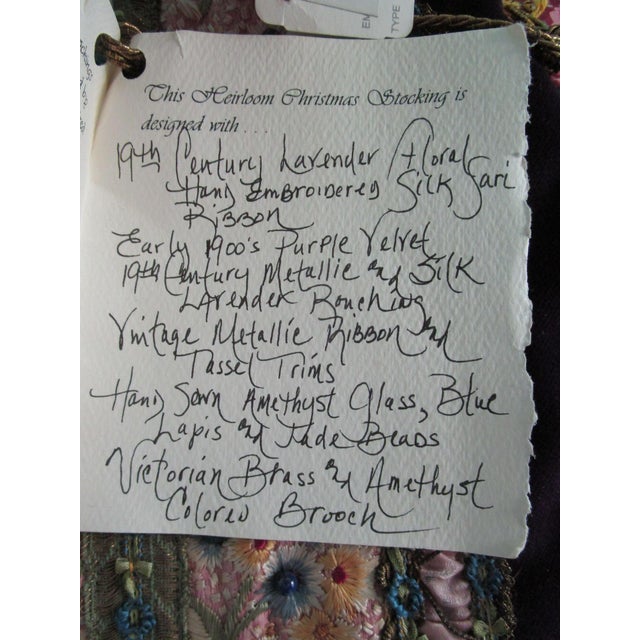 EM
TYPE
This Heirloom Christmas Stocking is
designed with . . .
19th Century Lavender Floral
Hand Embroidered Silk Sari
Ribbon
Early 1900's Purple Velvet
19th Century Metallic and Silk
Lavender Rouching
Vintage Metallic Ribbon and
Tassel Trims
Hand Sewn Amethyst Glass, Blue
Lapis and Jade Beads
Victorian Brass and Amethyst
Colored Brooch